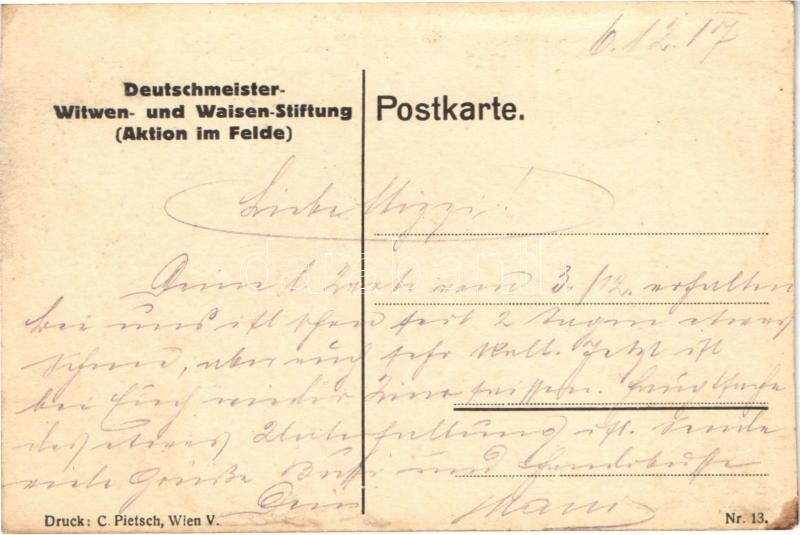 6.12.17
Deutschmeister-
Witwen- und Waisen-Stiftung
(Aktion im Felde)
Postkarte.
Liebe Mizzi!
Deine l. Karte vom 3./12. erhalten
bei uns ist schon seit 2 Tagen etwas
Schnee, aber auch sehr kalt. Jetzt ist
bei Euch wieder
das etwas Unterhaltung ist. Sende
viele Grüße Bussi und Handküsse
Dein
darabanth
Druck: C. Pietsch, Wien V.
Nr. 13.